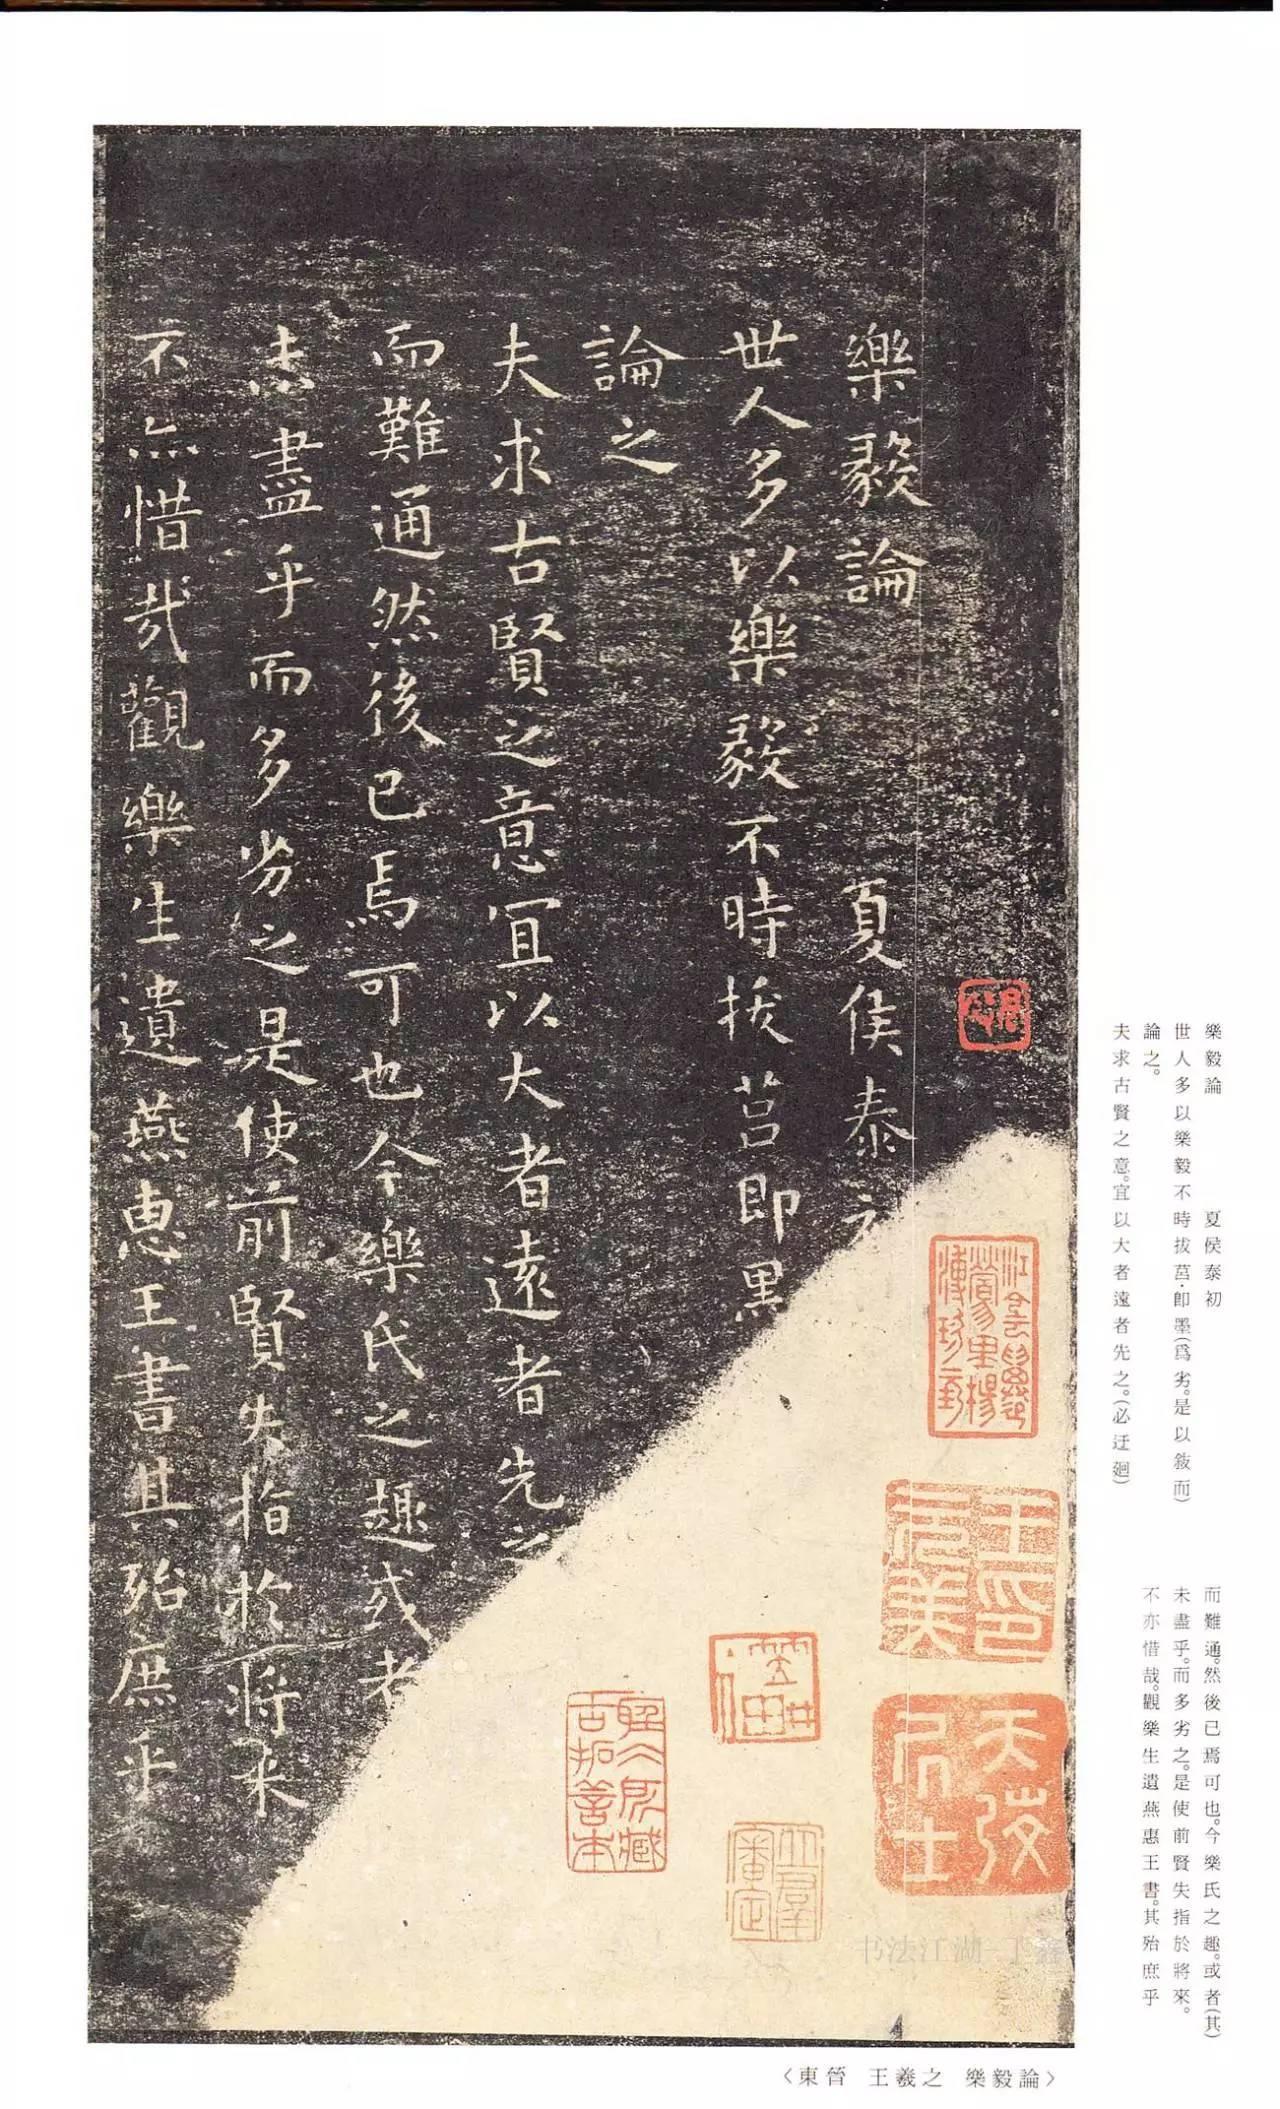 樂毅論 夏侯泰
世人多以樂毅不時拔莒即黑
論之
夫求古賢之意宜以大者遠者先之
而難通然後已焉可也今樂氏之趣或者
未盡乎而多劣之是使前賢失指於將来
不亦惜哉觀樂生遺燕惠王書其殆庶乎
天弢居士
樂毅論 夏侯泰初
世人多以樂毅不時拔莒·即墨(爲劣。是以敍而)
論之。
夫求古賢之意。宜以大者遠者先之。(必迂廻)
而難通。然後已焉可也。今樂氏之趣。或者(其)
未盡乎。而多劣之。是使前賢失指於將來。
不亦惜哉。觀樂生遺燕惠王書。其殆庶乎
〈東晉 王羲之 樂毅論〉